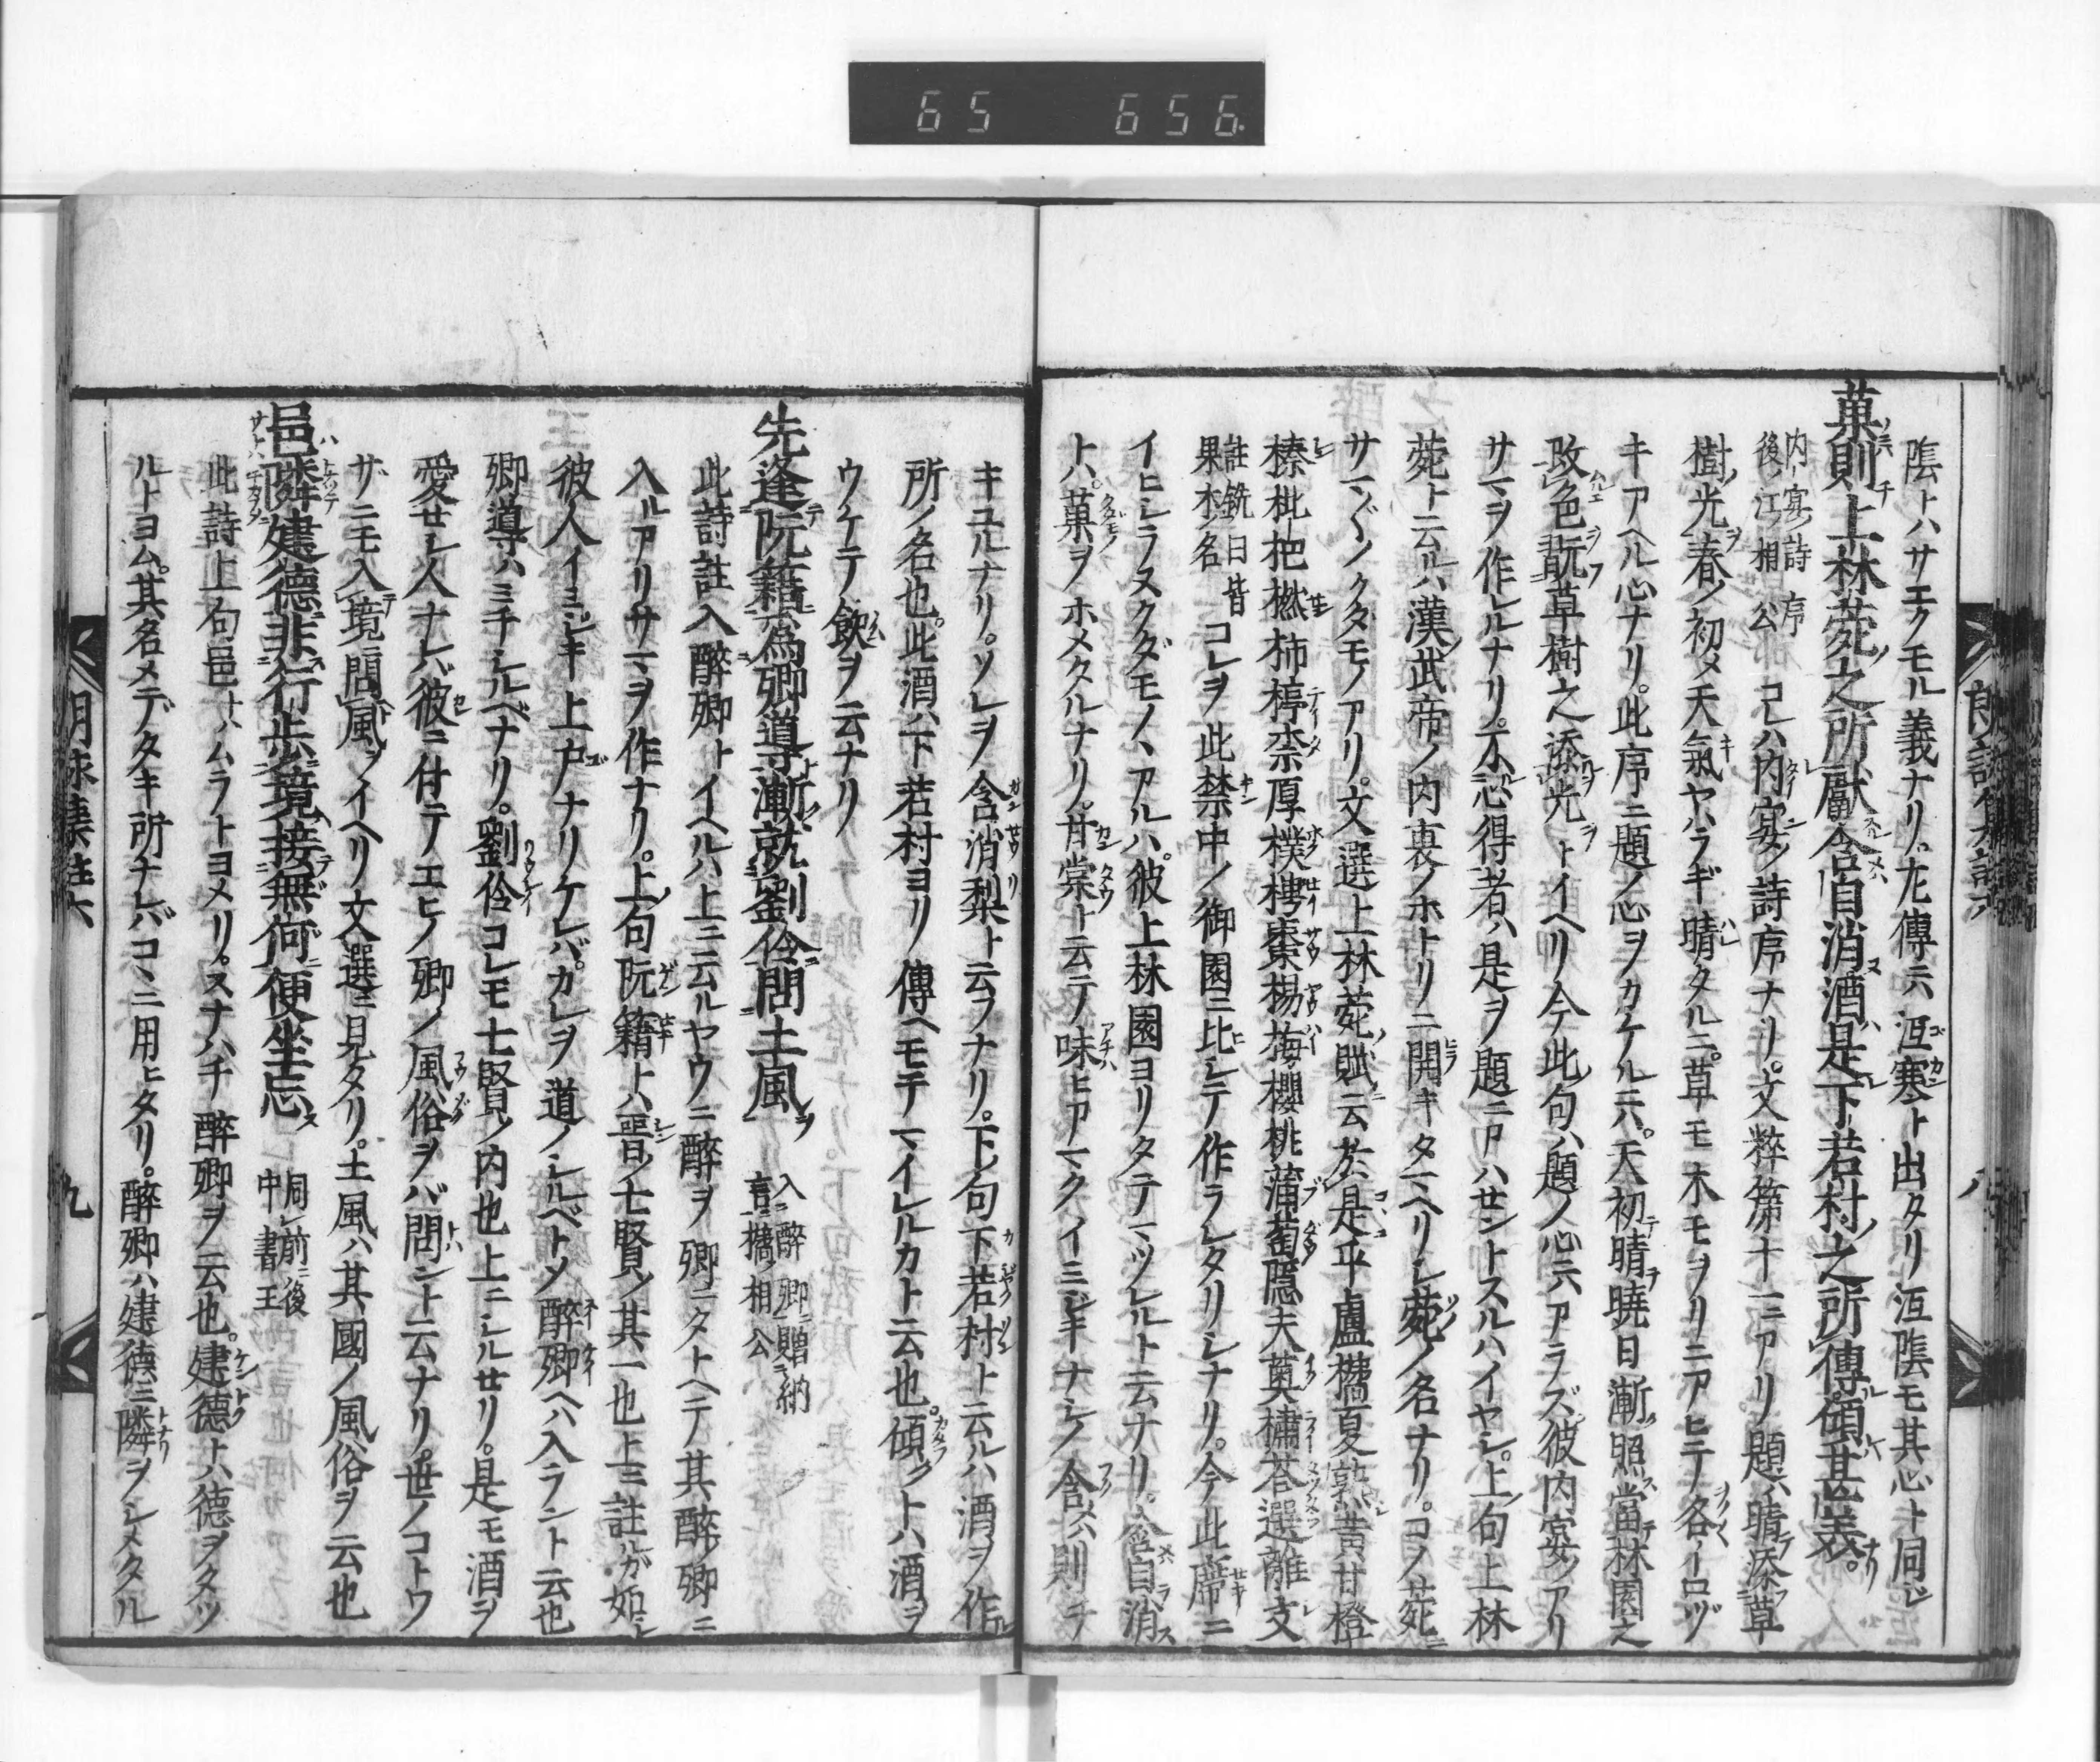 65 656
陰トハサエクモル義ナリ。左傳云沍寒ト出タリ沍陰モ其心ト同シ
菓則上林苑之所獻含自消酒是下若村之所傳傾甚美
内宴詩序
後江相公
コレハ内宴ノ詩序ナリ。文粹第十一ニアリ題ハ晴添草
樹光春ノ初メ天氣ヤハラギ晴タルニ。草モ木モヲリニアヒテ各イロヅ
キアヘル心ナリ。此序ニ題ノ心ヲカケルニハ。天初晴曉日漸照當林園之
改色翫草樹之添光トイヘリ今此句ハ題ノ心ニハアラズ彼内宴ノアリ
サマヲ作レルナリ不心得者ハ是ヲ題ニアハセントスルハイヤシ。上句上林
苑ト云ルハ漢武帝ノ内裏ノホトリニ開キタマヘリシ苑ノ名ナリ。コノ苑ニ
サマ〴〵ノクダモノアリ。文選上林苑賦云於是乎盧橘夏熟黄甘橙
榛枇杷橪柿楟柰厚樸梬棗楊梅櫻桃蒲萄隱夫薁棣荅遝離支
註銑曰皆
果木名
コレヲ此禁中ノ御園ニ比シテ作ラレタリシナリ。今此席ニ
イヒシラヌクダモノヽアルハ。彼上林園ヨリタテマツレルト云ナリ。含自消
トハ。菓ヲホメタルナリ。甘棠ト云テノ味ヒアマクイミジキナシノ含メハ則チ
キユルナリ。ソレヲ含消梨ト云フナリ。下句下若村ト云ルハ酒ヲ作ル
所ノ名也。此酒ハ下若村ヨリ傳ヘモテマイレルカト云也。傾クトハ酒ヲ
ウケテ飲ヲ云ナリ
先逢阮籍為卿導漸就劉伶問土風
入醉卿贈納
言橘相公
此詩註入醉卿トイヘルハ上ニ云ルヤウニ醉ヲ卿ニタトヘテ其醉卿ニ
入ルアリサマヲ作ナリ。上句阮籍トハ晋ノ七賢ノ其一也上ニ註ルガ如シ
彼人イミジキ上戸ナリケレバ。カレヲ道ノシルベトソ醉卿ヘハ入ラント云也
卿導ハミチシルベナリ。劉伶コレモ七賢ノ内也上ニシルセリ。是モ酒ヲ
愛セシ人ナレバ彼ニ付テノエヒノ卿ノ風俗ヲバ問ント云ナリ。世ノコトワ
ザニモ入境問風ヲイヘリ文選ニ見タリ。土風ハ其國ノ風俗ヲ云也
邑隣建德非行歩境接無何便坐忘
同前後
中書王
此詩上句邑トハムラトヨメリ。スナハチ醉卿ヲ云也。建德トハ德ヲタツ
ルトヨム。其名メデタキ所ナレバコヽニ用ヒタリ。醉卿ハ建德ニ隣ヲシメタル
九